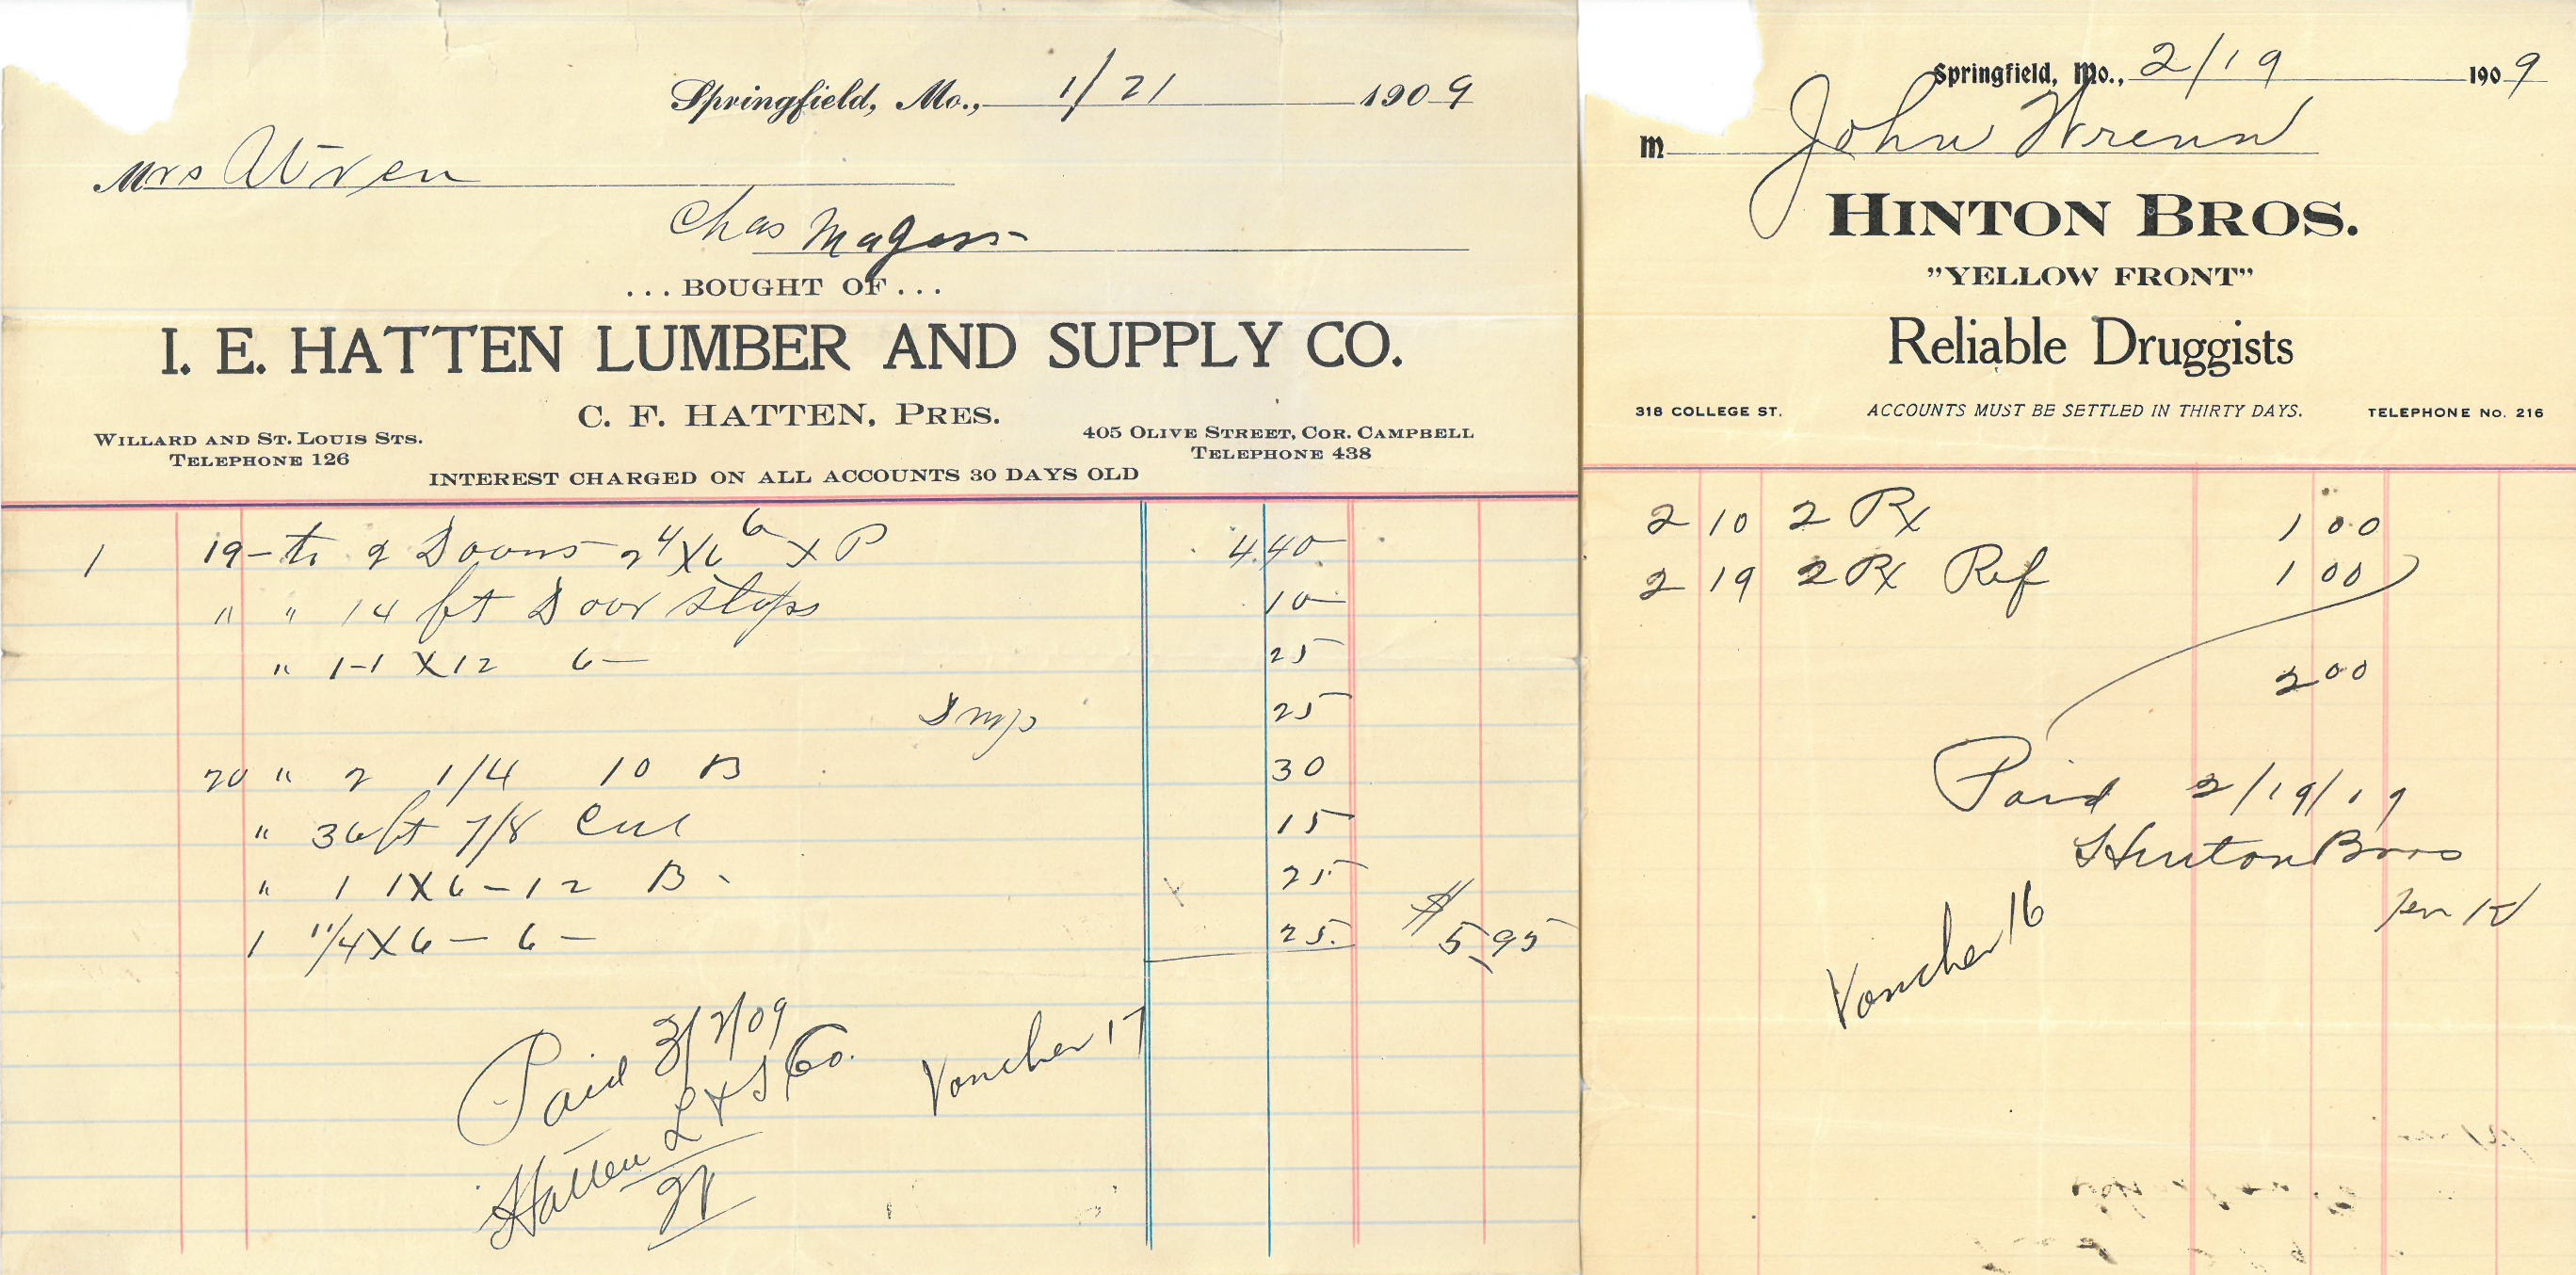 Springfield, Mo., 1/21 1909
Mrs Wren
Chas Magers
... BOUGHT OF ...
I. E. HATTEN LUMBER AND SUPPLY CO.
C. F. HATTEN, PRES.
WILLARD AND ST. LOUIS STS.
TELEPHONE 126
405 OLIVE STREET, COR. CAMPBELL
TELEPHONE 438
INTEREST CHARGED ON ALL ACCOUNTS 30 DAYS OLD
1 19 - to 2 Doors 2 4 X 6 6 X P 4.40
" " 14 ft Door Stops 10
" 1-1 X 12 6 - 25
25
20 " 2 1/4 10 B 30
" 36 ft 7/8 15
" 1 1X6-12 B - 25
1 1 1/4 X 6 - 6 - 25 $5.95
Paid 3/2/09
Hatten L & S Co.
Voucher 17
Springfield, Mo., 2/19 1909
M John Wrenn
HINTON BROS.
"YELLOW FRONT"
Reliable Druggists
318 COLLEGE ST. ACCOUNTS MUST BE SETTLED IN THIRTY DAYS. TELEPHONE NO. 216
2 10 2 Rx 1 00
2 19 2 Rx Ref 1 00
2 00
Paid 2/19/09
Hinton Bros
Voucher 16